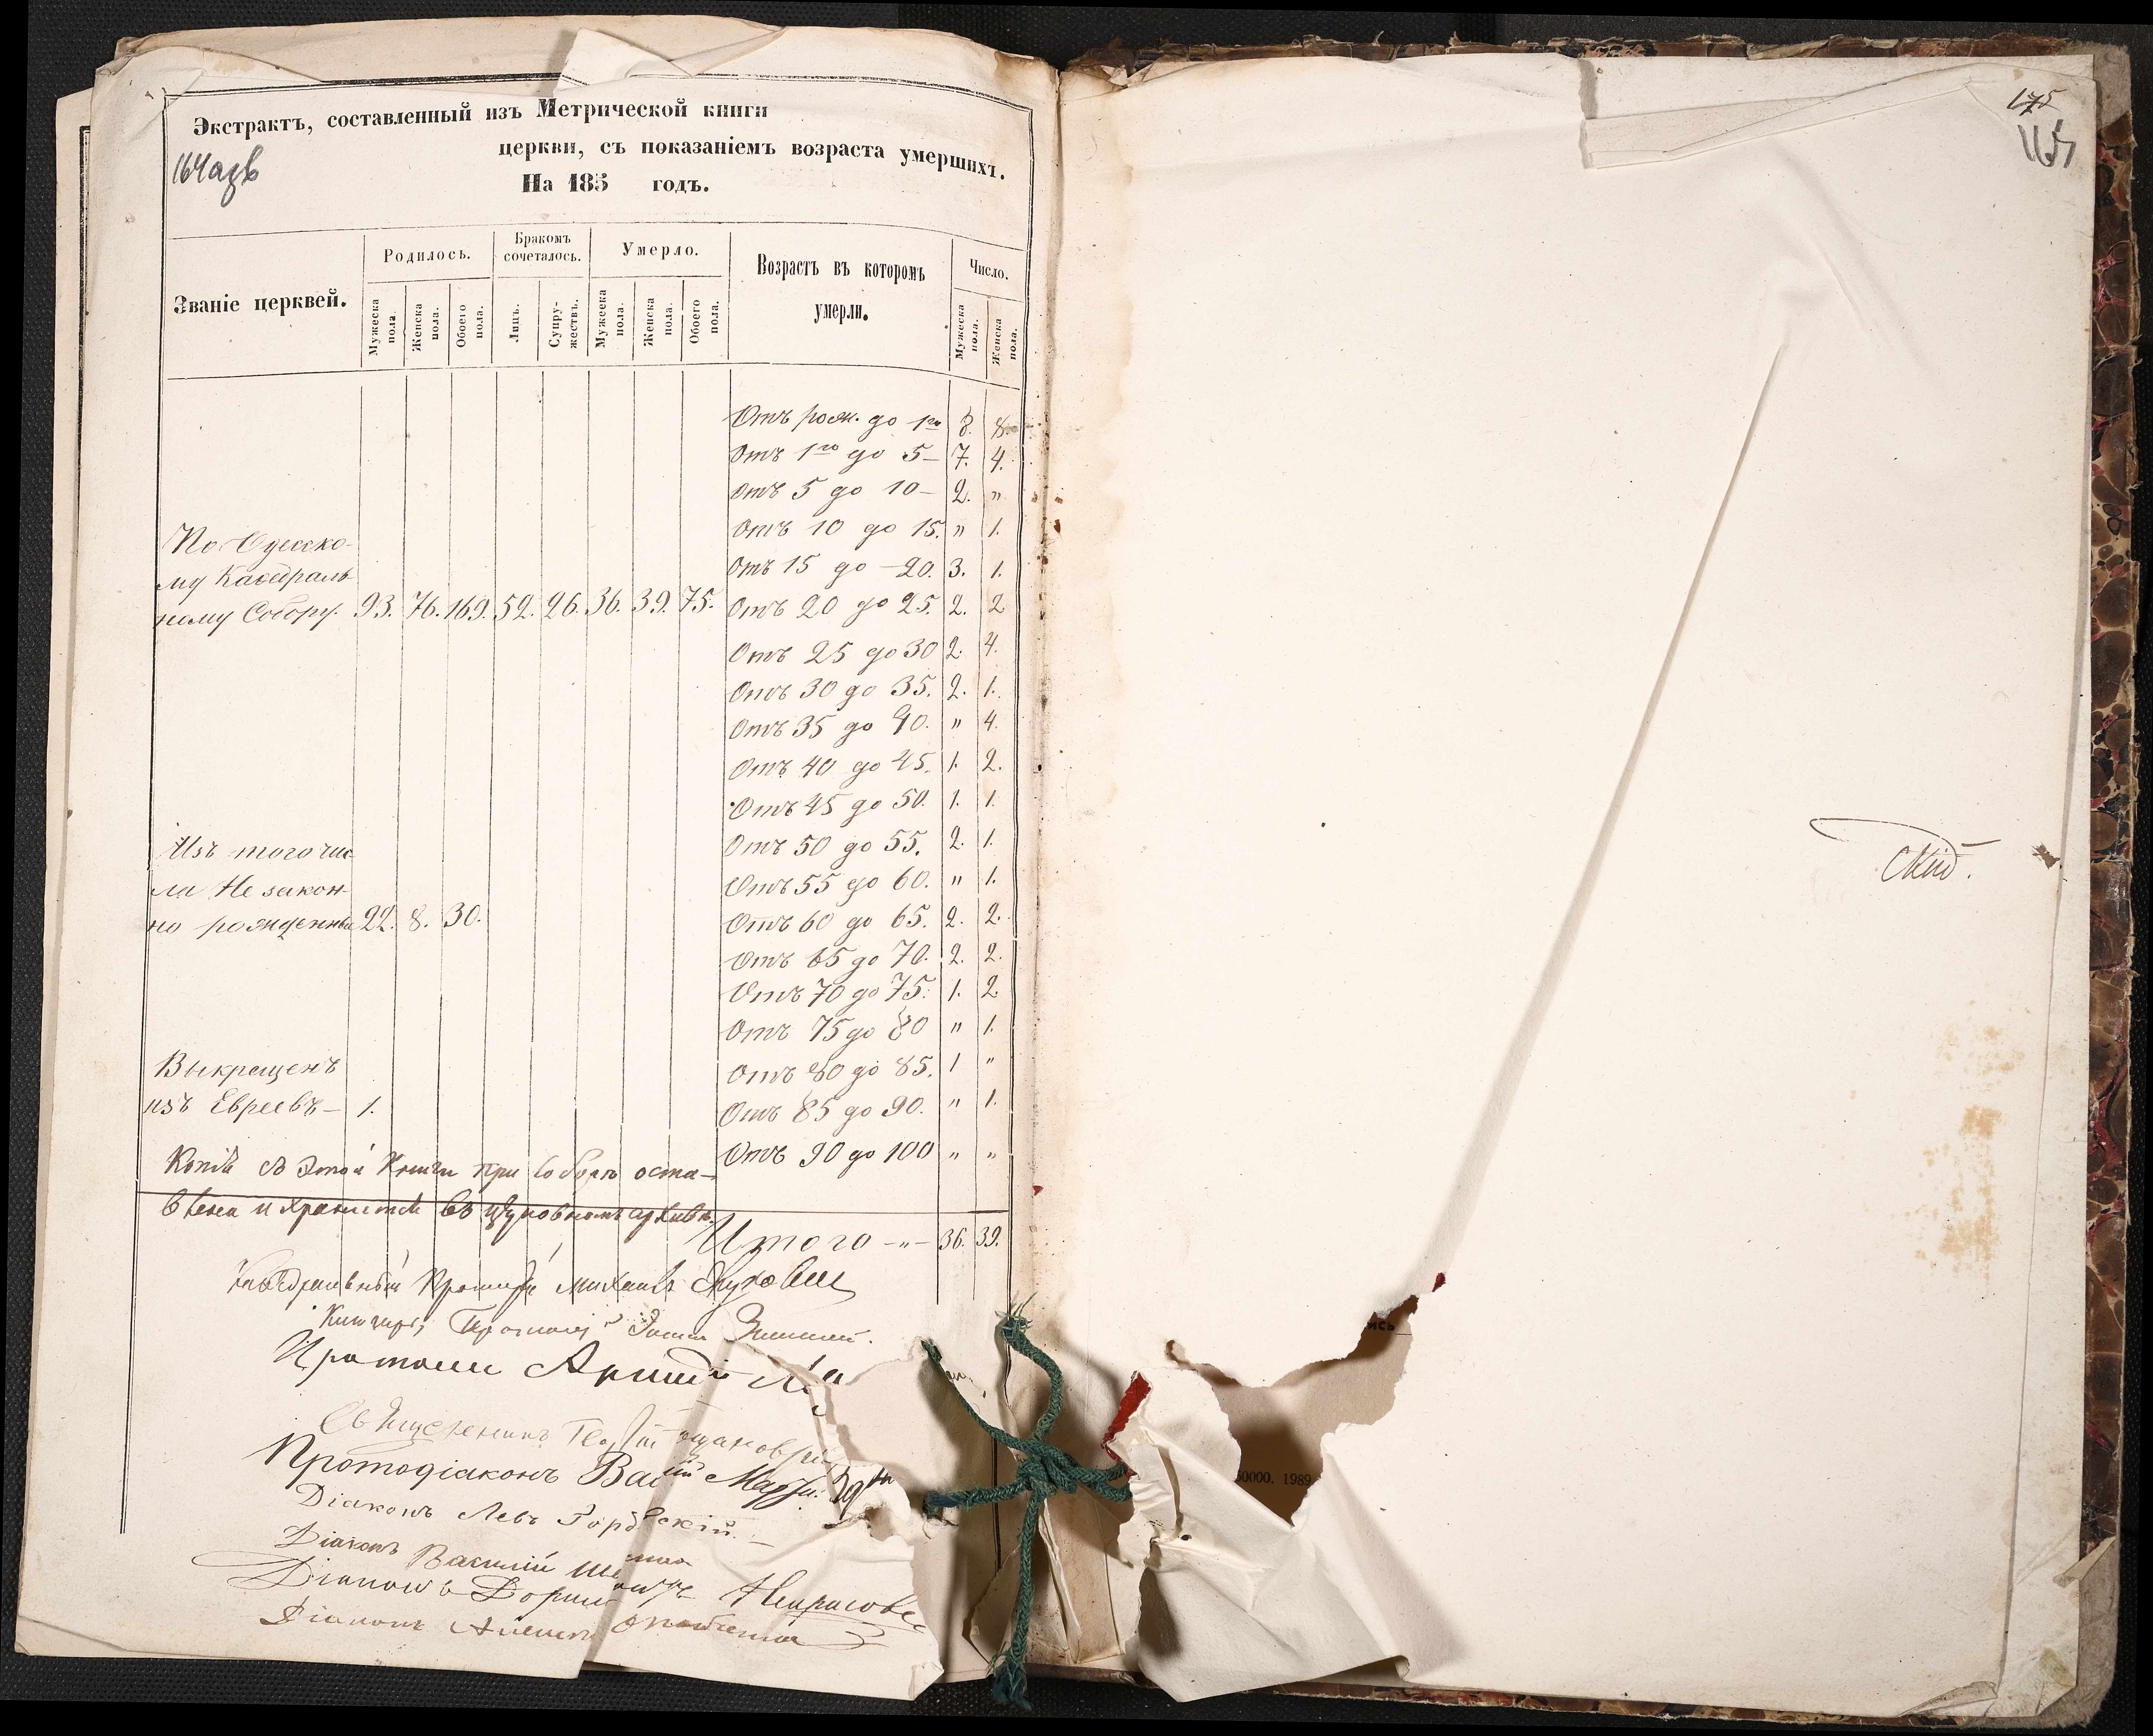 Экстрактъ, составленный изъ Метрической книги
церкви, съ показаніемъ возраста умершихъ.
164 адв
На 185 годъ.
Званіе церквей.
Родилось.
Бракомъ сочеталось.
Умерло.
Возрастъ въ которомъ умерли.
Число.
Мужеска пола.
Женска пола.
Обоего пола.
Лицъ.
Супружествъ.
Мужеска пола.
Женска пола.
Обоего пола.
Мужеска пола.
Женска пола.
Отъ рож. до 1го 8. 8.
Отъ 1го до 5– 7. 4.
Отъ 5 до 10– 2. "
Отъ 10 до 15. " 1.
По Одесско-
му Каѳедраль-
Отъ 15 до –20. 3. 1.
ному Собору. 93. 76. 169. 52. 26. 36. 39. 75. Отъ 20 до 25. 2. 2
Отъ 25 до 30 2. 4.
Отъ 30 до 35. 2. 1.
Отъ 35 до 40. " 4.
Отъ 40 до 45. 1. 2.
Отъ 45 до 50. 1. 1.
Изъ того чис
Отъ 50 до 55. 2. 1.
ла Не закон-
Отъ 55 до 60. " 1.
но рожденных 22. 8. 30. Отъ 60 до 65. 2. 2.
Отъ 65 до 70. 2. 2.
Отъ 70 до 75. 1. 2
Отъ 75 до 80 " 1.
Выкрещенъ
Отъ 80 до 85. 1 "
изъ Евреевъ– 1. Отъ 85 до 90. " 1.
Отъ 90 до 100 " "
Копія съ этой книги при Соборѣ оста-
влена и хранится въ церковномъ архивѣ.
Итого –"– 36. 39.
Каѳедральный Михаилъ
Ключарь,
Протоіе
Священникъ
Протодіаконъ Вас
Діаконъ Левъ
Діаконъ Василій
Діаконъ Некрасовъ
Діаконъ
175
165
50000. 1989